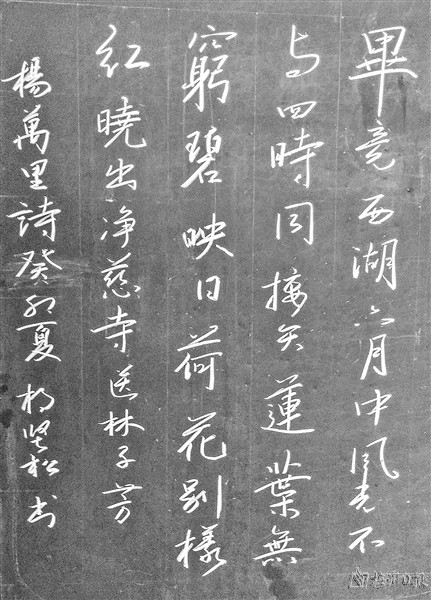 畢竟西湖六月中風光不
与四時同接天蓮葉無
窮碧映日荷花别樣
红曉出净慈寺送林子芳
楊萬里詩癸卯夏坚松书
日报